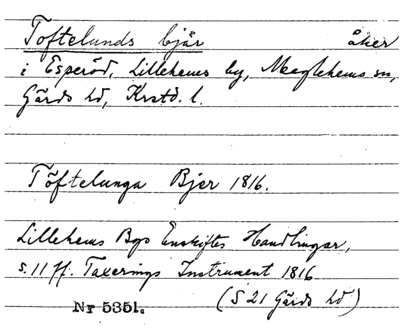 Toftelunds bjär åker
i Esperöd, Lillehems by, Maglehems sn,
Gärds hd, Krstd. l.
Töftelunga Bjer 1816.
Lillehems Bys Enskiftes Handlingar,
s. 11 ff. Taxerings Instrument 1816
Nr 5351. (S 21 Gärds hd)